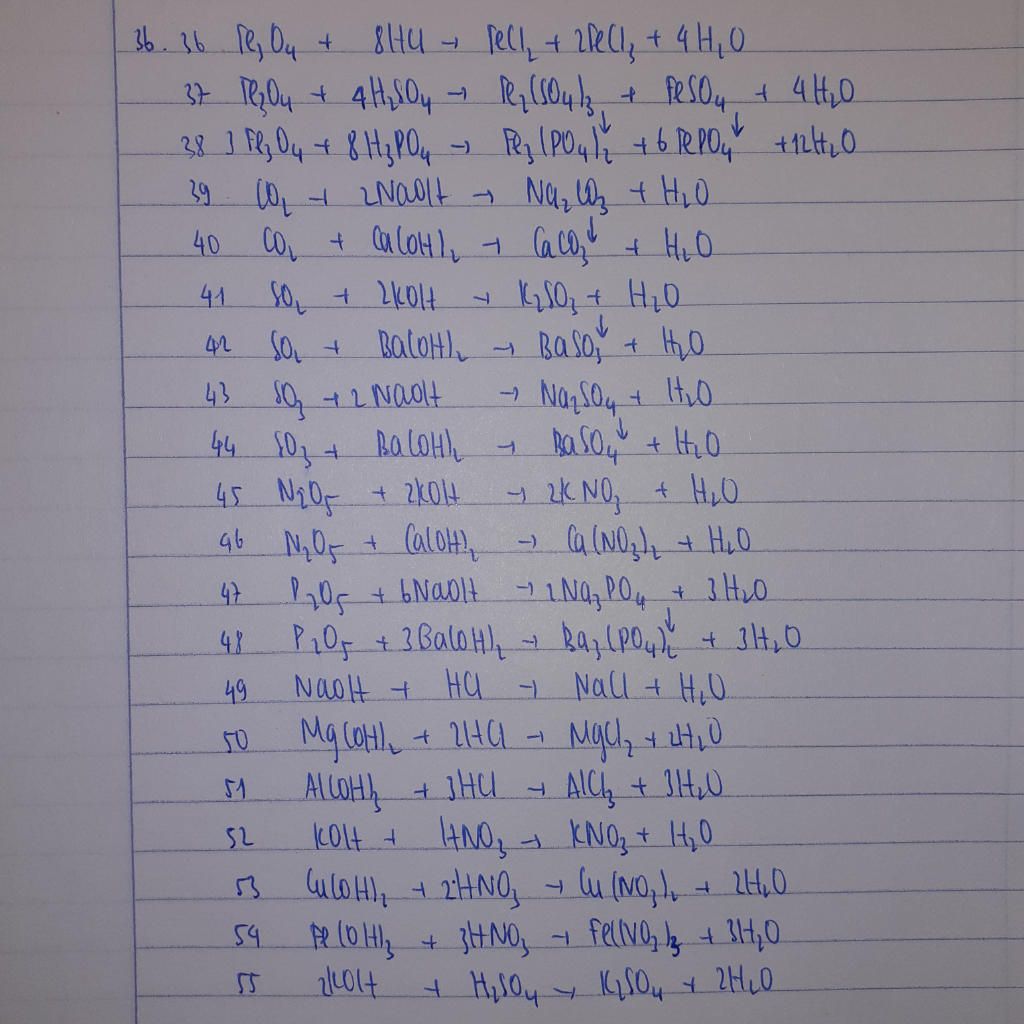 36. 36 Fe₃O₄ + 8HCl → FeCl₂ + 2FeCl₃ + 4H₂O
37 Fe₃O₄ + 4H₂SO₄ → Fe₂(SO₄)₃ + FeSO₄ + 4H₂O
38 3Fe₃O₄ + 8H₃PO₄ → Fe₃(PO₄)₂↓ + 6FePO₄↓ + 12H₂O
39 CO₂ + 2NaOH → Na₂CO₃ + H₂O
40 CO₂ + Ca(OH)₂ → CaCO₃↓ + H₂O
41 SO₂ + 2KOH → K₂SO₃ + H₂O
42 SO₂ + Ba(OH)₂ → BaSO₃↓ + H₂O
43 SO₃ + 2NaOH → Na₂SO₄ + H₂O
44 SO₃ + Ba(OH)₂ → BaSO₄↓ + H₂O
45 N₂O₅ + 2KOH → 2KNO₃ + H₂O
46 N₂O₅ + Ca(OH)₂ → Ca(NO₃)₂ + H₂O
47 P₂O₅ + 6NaOH → 2Na₃PO₄ + 3H₂O
48 P₂O₅ + 3Ba(OH)₂ → Ba₃(PO₄)₂↓ + 3H₂O
49 NaOH + HCl → NaCl + H₂O
50 Mg(OH)₂ + 2HCl → MgCl₂ + 2H₂O
51 Al(OH)₃ + 3HCl → AlCl₃ + 3H₂O
52 KOH + HNO₃ → KNO₃ + H₂O
53 Cu(OH)₂ + 2HNO₃ → Cu(NO₃)₂ + 2H₂O
54 Fe(OH)₃ + 3HNO₃ → Fe(NO₃)₃ + 3H₂O
55 2KOH + H₂SO₄ → K₂SO₄ + 2H₂O